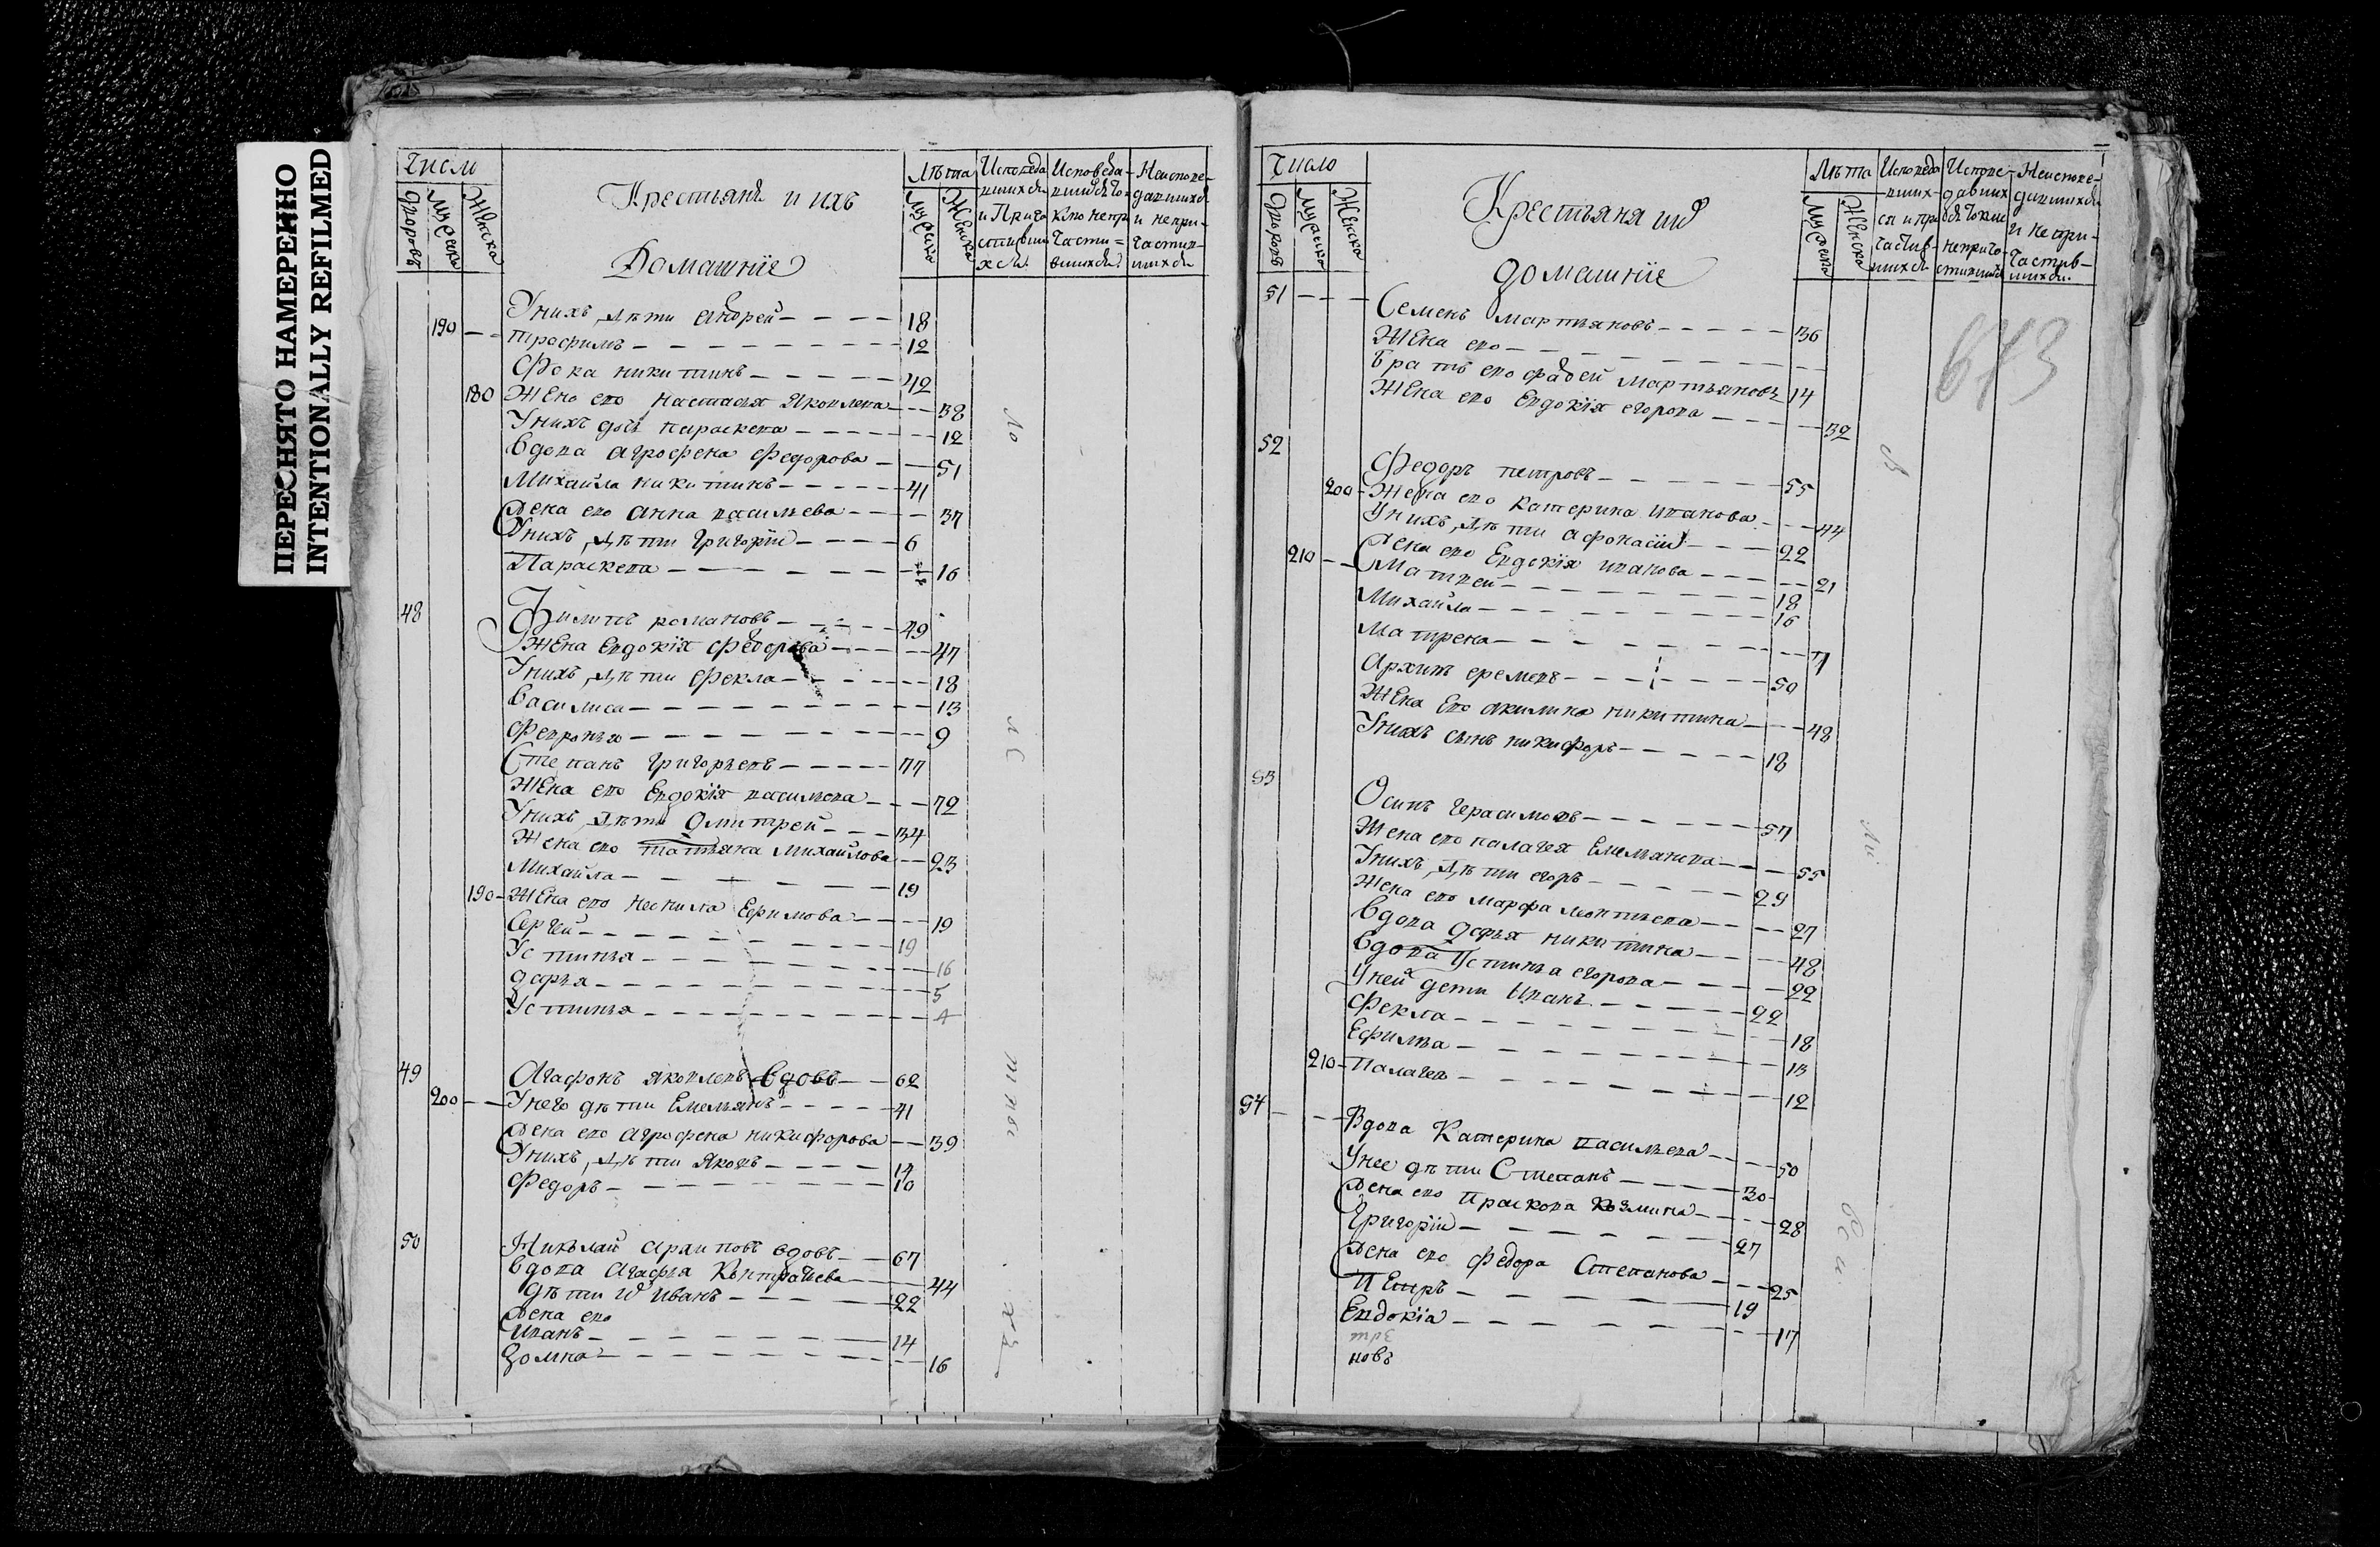 ПЕРЕСНЯТО НАМЕРЕННО
INTENTIONALLY REFILMED
Число
Дворовъ
Мужска
Женска
Крестьяне и ихъ
Домашніе
Лѣта
Мужска
Женска
Исповедавшихся и Причастившихся
Исповедавшихся токмо непричастившихся
Неисповедавшихся и непричастившихся
Унихъ дѣти Андрей 18
190 Трофимъ 12
Фока никитинъ 42
180 Жена ево настасья Яковлева 38
Унихъ дочь параскева 12
Вдова Агрофена Федорова 51
Михайла никитинъ 41
Жена ево Анна васильева 37
Унихъ дѣти Григорій 6
Параскева 16
48 Филипъ романовъ 49
Жена Евдокія Федорова 47
Унихъ дѣти Фекла 18
Василиса 13
Февронья 9
Степанъ Григорьевъ 77
Жена ево Евдокія васильева 72
Унихъ дѣти Дмитрей 34
Жена ево татьяна Михайлова 23
Михайла 19
190 Жена ево Неонила Ефимова 19
Сергей 19
Устинья 16
Дарья 5
Устинья 4
49 Агафонъ яковлевъ вдовъ 62
200 Унего дѣти Емельянъ 41
Жена ево Агрофена никифорова 39
Унихъ дѣти Яковъ 14
Федоръ 10
50 Николай Архиповъ вдовъ 67
Вдова Агафья Контратьева 44
дѣти Иванъ 22
Жена ево
Иванъ 14
Домна 16
Число
Дворовъ
Мужска
Женска
Крестьяня ихъ
домашніе
Лѣта
Мужска
Женска
Исповедавшихся и причастившихся
Исповедавшихся токмо непричастившихся
Неисповедавшихся и непричастившихся
673
51 Семенъ Мартьяновъ 36
Жена ево
Братъ ево фадей Мартьяновъ 14
Жена ево Евдокія егорова 32
52 Федоръ петровъ 55
200 Жена ево Катерина иванова 44
Унихъ дѣти Афонасій 22
Жена ево Евдокія иванова 21
210 Матвей 18
Михайла 16
Матрена 7
Архипъ еремевъ 50
Жена Ево акилина никитина 48
Унихъ сынъ никифоръ 18
53 Осипъ Герасимовъ 57
Жена ево палагея Емельянова 55
Унихъ дѣти егоръ 29
Жена ево Марфа леонтьева 27
Вдова дарья никитина 48
Вдова Устинья егорова 22
Уней дети Иванъ 22
Фекла 18
Ефимья 13
210 Палагея 12
54 Вдова Катерина васильева 50
Унее дѣти Степанъ 30
Жена ево праскова Козмина 28
Григорій 27
Жена ево Федора Степанова 25
Петръ 19
Евдокіа 17
новъ